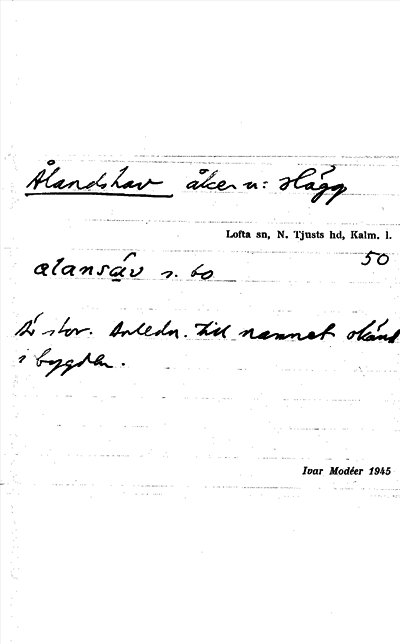 Ålandshav åker u: Hägg
Lofta sn, N. Tjusts hd, Kalm. l.
50
alansav s. 60
Är stor. Anledn. till namnet okänd
i bygden.
Ivar Modéer 1945